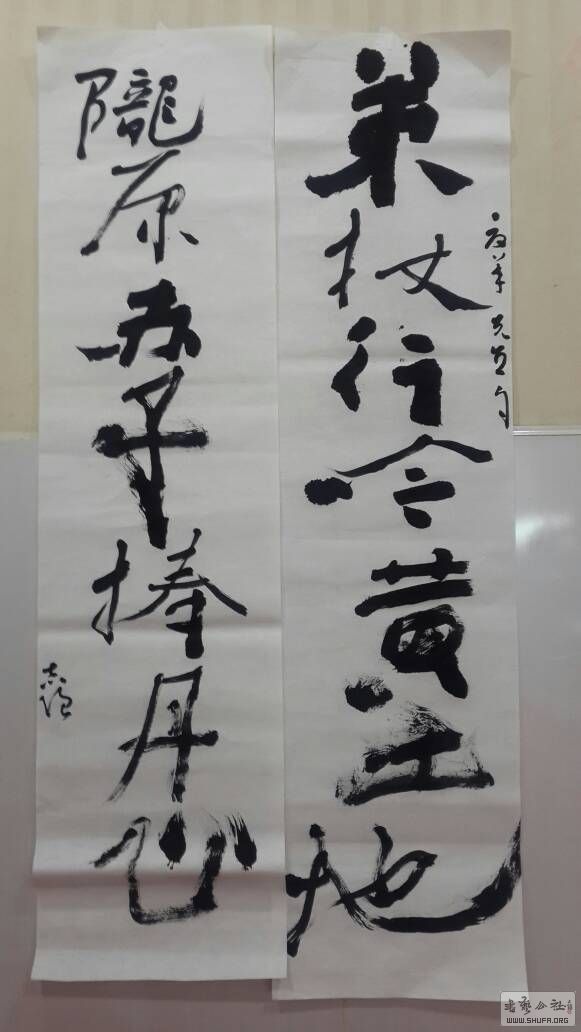 策杖行吟黄土地
先生句
隴原赤子捧丹心
书艺公社
WWW.SHUFA.ORG